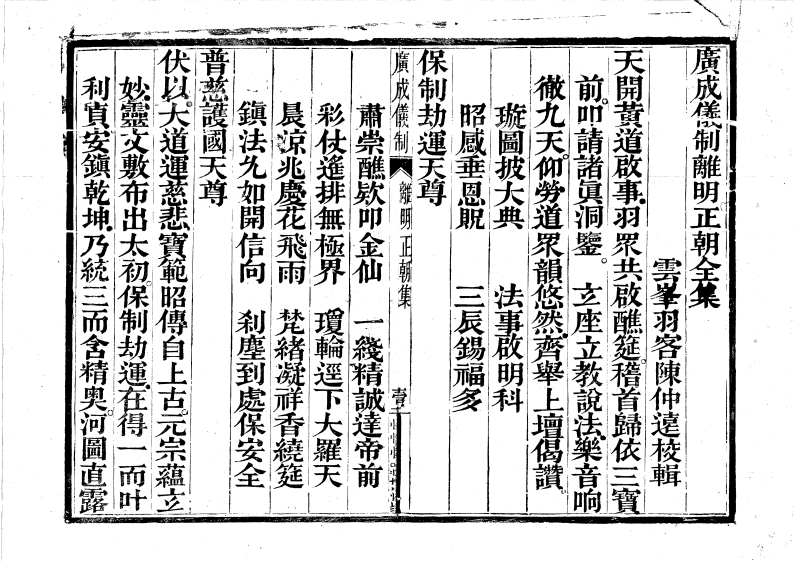 廣成儀制離明正朝全集
雲峯羽客陳仲遠校輯
天開黃道啟事羽眾共啟醮筵稽首歸依三寶
前叩請諸眞洞鑒。立座立教說法樂音响
徹九天仰勞道眾韻悠然齊舉上壇偈讚。
璇圖披大典 法事啟明科
昭感垂恩貺 三辰錫福多
保制劫運天尊
廣成儀制 離明正朝集 壹
肅崇醮欵叩金仙 一綫精誠達帝前
彩仗遙排無極界 瓊輪逕下大羅天
晨凉兆慶花飛雨 梵緒凝祥香繞筵
鎮法九如開信向 剎塵到處保安全
普慈護國天尊
伏以大道運慈悲寶範昭傳自上古元宗蘊立
妙靈文敷布出太初。保制劫運在得一而叶
利貞安鎮乾坤乃統三而含精奥河圖直露